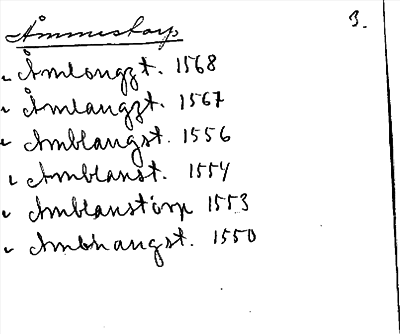 3.
Åmmestorp
Åmlongzt. 1568
Åmlangzt. 1567
Amblangst. 1556
Amblanst. 1554
Amblanstörp 1553
Ambnangst. 1550